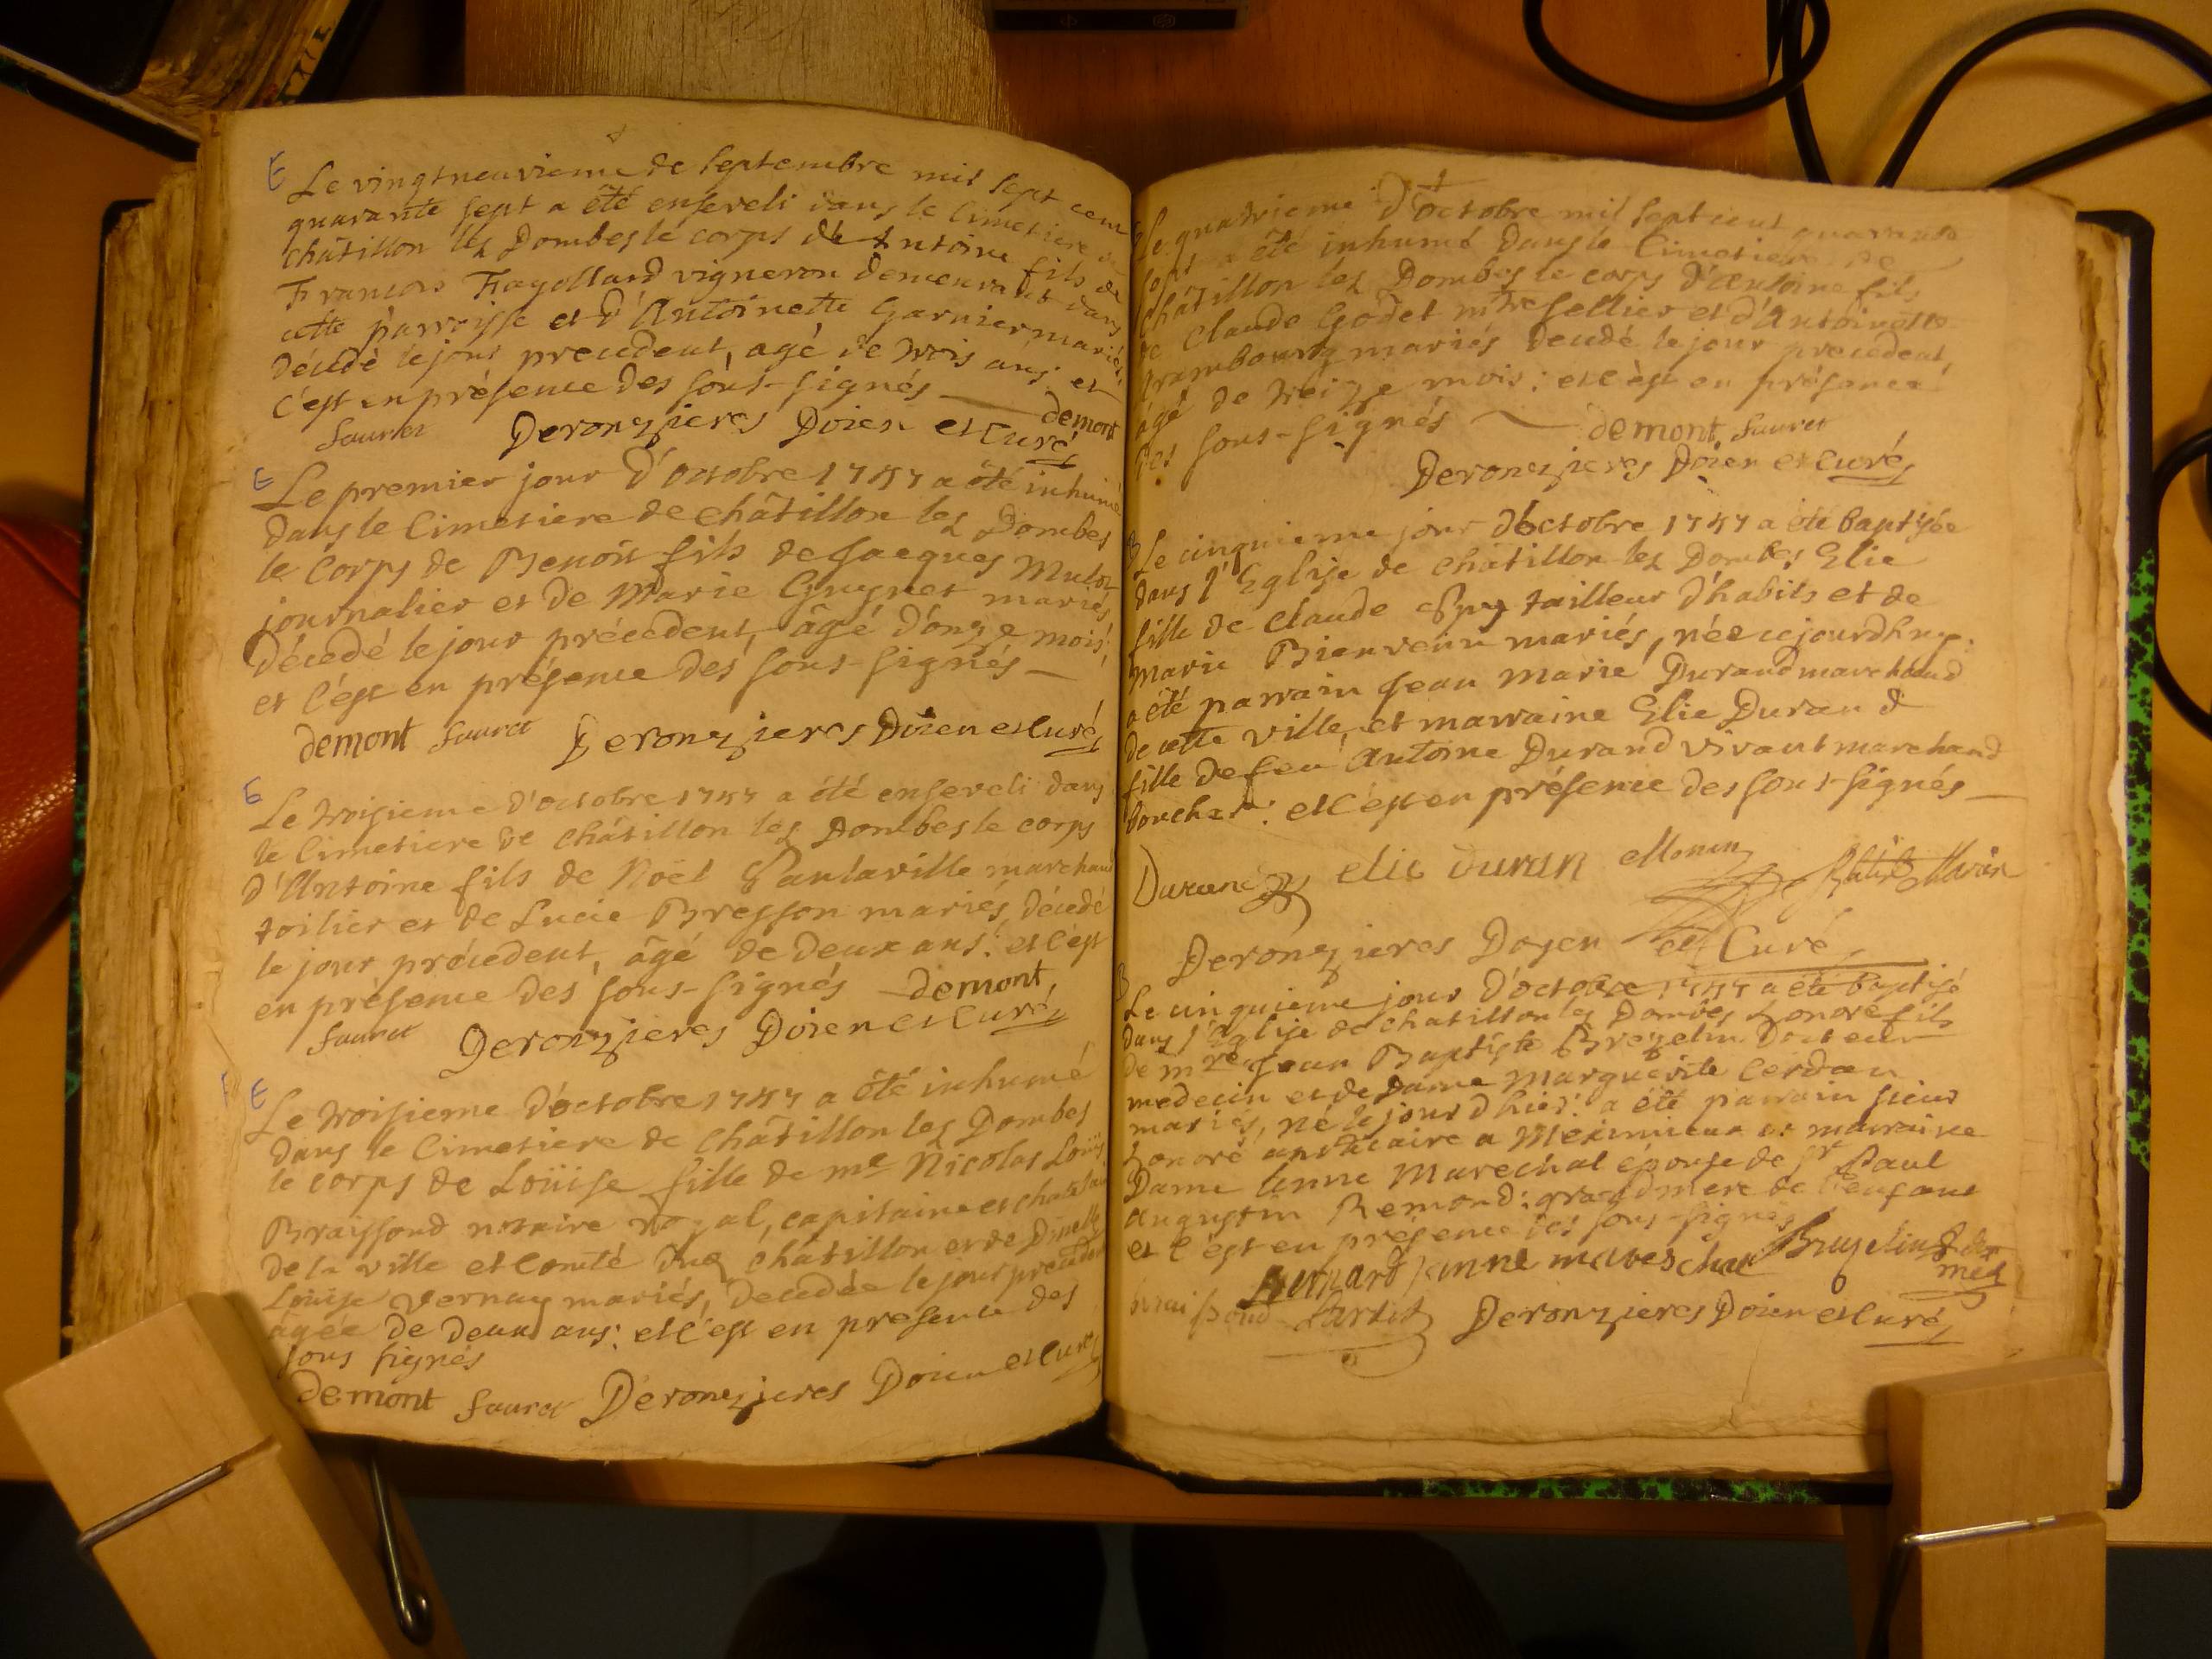 E Le vingtneuvieme de septembre mil sept cent
quarante sept a été enseveli dans le cimetiere de
châtillon lez Dombes le corps de Antoine fils de
François Fayolland vigneron demeurant dans
cette parroisse et d'Antoinette Garnier mariés
décédé le jour precedent, agé de trois ans: et
c'est en présence des sous-signés — demont
sauret Deronzieres Doien et Curé
E Le premier jour d'octobre 1747 a été inhumé
dans le Cimetiere de châtillon lez Dombes
le Corps de Benoit fils de Jacques Mulot
journalier et de Marie Guynet mariés,
Décedé le jour précedent, âgé d'onze mois;
et c'est en présence des sous-signés —
demont sauret Deronzieres Doien et Curé
E Le troisieme d'octobre 1747 a été enseveli dans
le Cimetiere de châtillon lez Dombes le corps
d'Antoine fils de Noël Pantaville marchand
toilier et de Lucie Bresson mariés, décédé
le jour précedent, âgé de deux ans: et c'est
en présence des sous-signés demont
sauret Deronzieres Doien et Curé
E Le troisieme d'octobre 1747 a été inhumé
dans le Cimetiere de châtillon lez Dombes
le corps de Loüise fille de me Nicolas Loüis
Brayssoud notaire royal, capitaine et chatelain
de la ville et Comté dud châtillon et de Dmelle
Loüise Vernay mariés, decedée le jour precedent
âgée de deux ans: et c'est en presence des
sous signés
demont sauret Deronzieres Doien et Curé
Le quatrieme d'octobre mil sept cent quarante
sept a été inhumé dans le Cimetiere de
châtillon lez Dombes le corps d'Antoine fils
de Claude Godet mtre sellier et d'Antoinette
Brambourg mariés decedé le jour precedent,
âgé de treize mois: et c'est en présence
des sous-signés — demont sauret
Deronzieres Doien et Curé
B Le cinquieme jour d'octobre 1747 a été baptisée
dans l'Eglise de châtillon lez Dombes Elie
fille de Claude tailleur d'habits et de
marie Bienvenu mariés, née cejourdhuy:
a été parrain Jean Marie Durand marchand
de cette ville, et marraine Elie Durand
fille de feu Antoine Durand vivant marchand
boucher: et c'est en présence des sous-signés —
Durand elie duran Monin
Deronzieres Doyen et Curé
B Le cinquieme jour d'octobre 1747 a été baptisé
dans l'Eglise de chatillon lez Dombes honoré fils
de mre Jean Baptiste Brezelin Docteur
medecin et de Dame Marguerite Cerdon
mariés, né le jour d'hier: a été parrain sieur
honoré apoticaire a Meximieux et marraine
Dame Anne Marechal épouse de sr Paul
Augustin Remond: grandmere de l'enfant
et c'est en présence des sous-signés
Bernard anne mareschal
braissoud Deronzieres Doien et Curé